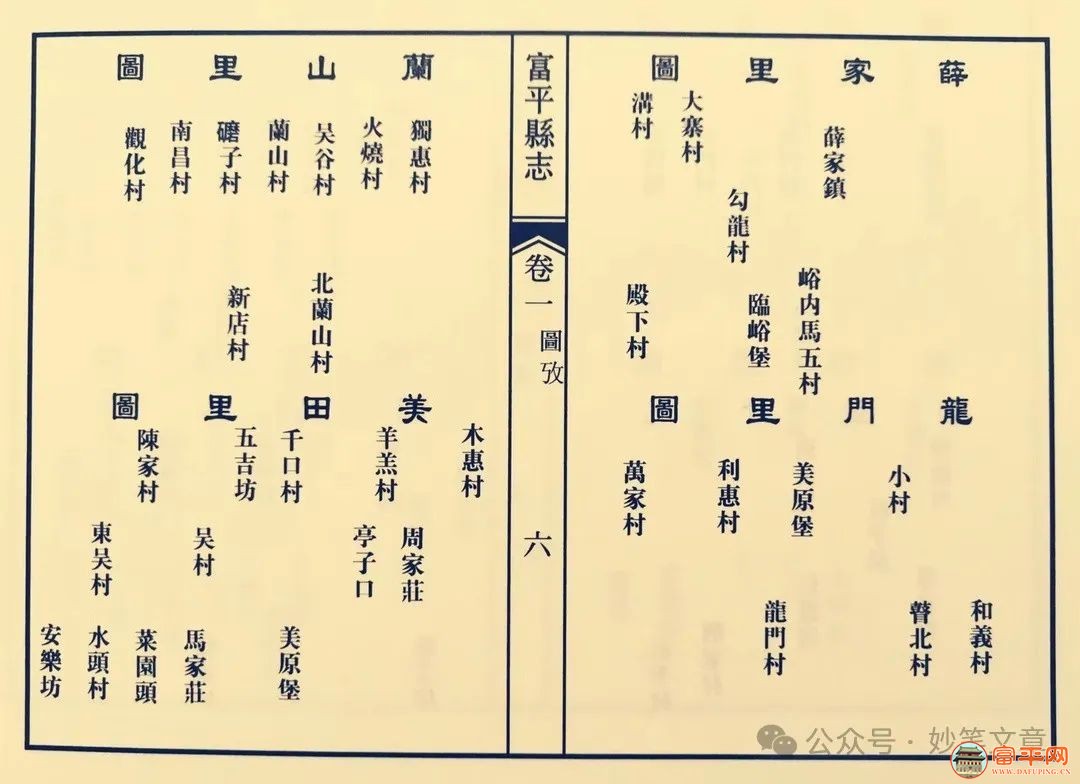 薛家里圖
薛家鎮
大寨村
溝村
勾龍村
峪内馬五村
臨峪堡
殿下村
龍門里圖
小村
美原堡
利惠村
萬家村
和義村
瞽北村
龍門村
富平縣志
卷一
圖攷
六
蘭山里圖
獨惠村
火燒村
吴谷村
蘭山村
磨子村
南昌村
觀化村
北蘭山村
新店村
美田里圖
木惠村
羊羔村
千口村
五吉坊
陳家村
周家莊
亭子口
吴村
東吴村
美原堡
馬家莊
菜園頭
水頭村
安樂坊
公众号·妙笔文章
富平网
WWW.DAFUPING.CN